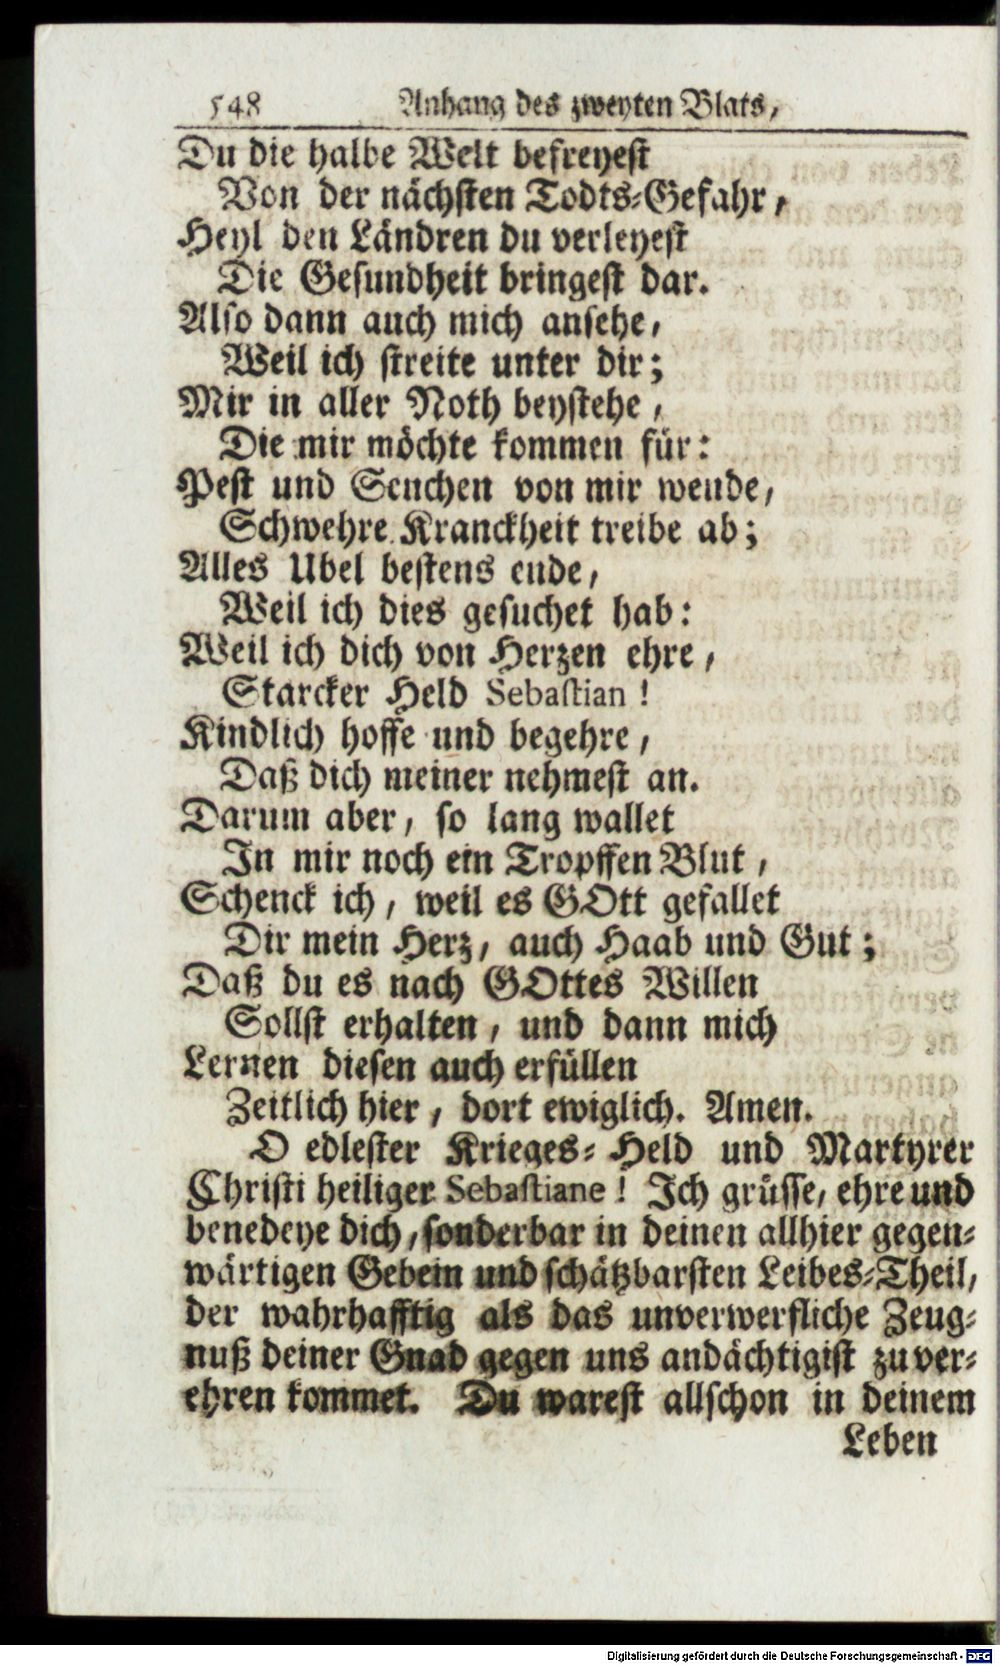 548 Anhang des zweyten Blats,
Du die halbe Welt befreyest
Von der nächsten Todts-Gefahr,
Heyl den Ländren du verleyest
Die Gesundheit bringest dar.
Also dann auch mich ansehe,
Weil ich streite unter dir;
Mir in aller Noth beystehe,
Die mir möchte kommen für:
Pest und Seuchen von mir wende,
Schwehre Kranckheit treibe ab;
Alles Ubel bestens ende,
Weil ich dies gesuchet hab:
Weil ich dich von Herzen ehre,
Starcker Held Sebastian!
Kindlich hoffe und begehre,
Daß dich meiner nehmest an.
Darum aber, so lang wallet
In mir noch ein Tropffen Blut,
Schenck ich, weil es GOtt gefallet
Dir mein Herz, auch Haab und Gut;
Daß du es nach GOttes Willen
Sollst erhalten, und dann mich
Lernen diesen auch erfüllen
Zeitlich hier, dort ewiglich. Amen.
O edlester Krieges-Held und Martyrer
Christi heiliger Sebastiane! Ich grüsse, ehre und
benedeye dich, sonderbar in deinen allhier gegen-
wärtigen Gebein und schätzbarsten Leibes-Theil,
der wahrhafftig als das unverwerfliche Zeug-
nuß deiner Gnad gegen uns andächtigist zu ver-
ehren kommet. Du warest allschon in deinem
Leben
Digitalisierung gefördert durch die Deutsche Forschungsgemeinschaft - DFG